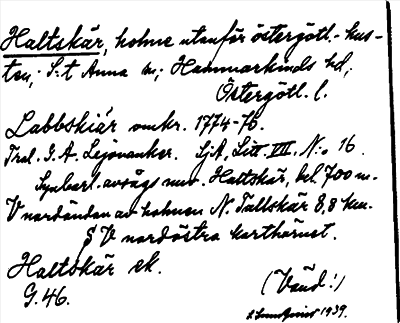 Haltskär, holme utanför östergötl.-kus-
ten; S:t Anna sn; Hammarkinds hd;
Östergötl. l.
Labbskiär omkr. 1774-76.
Tral. G. A. Lejonanker. SjA, Litt VII, N:o 16.
Synbarl. avsågs nuv. Haltskär, bel. 700 m.
V nordändan av holmen N. Tallskär 8,8 km.
§ V nordöstra karthörnet.
Haltskär ek.
G. 46.
(Vånd!)
1939.